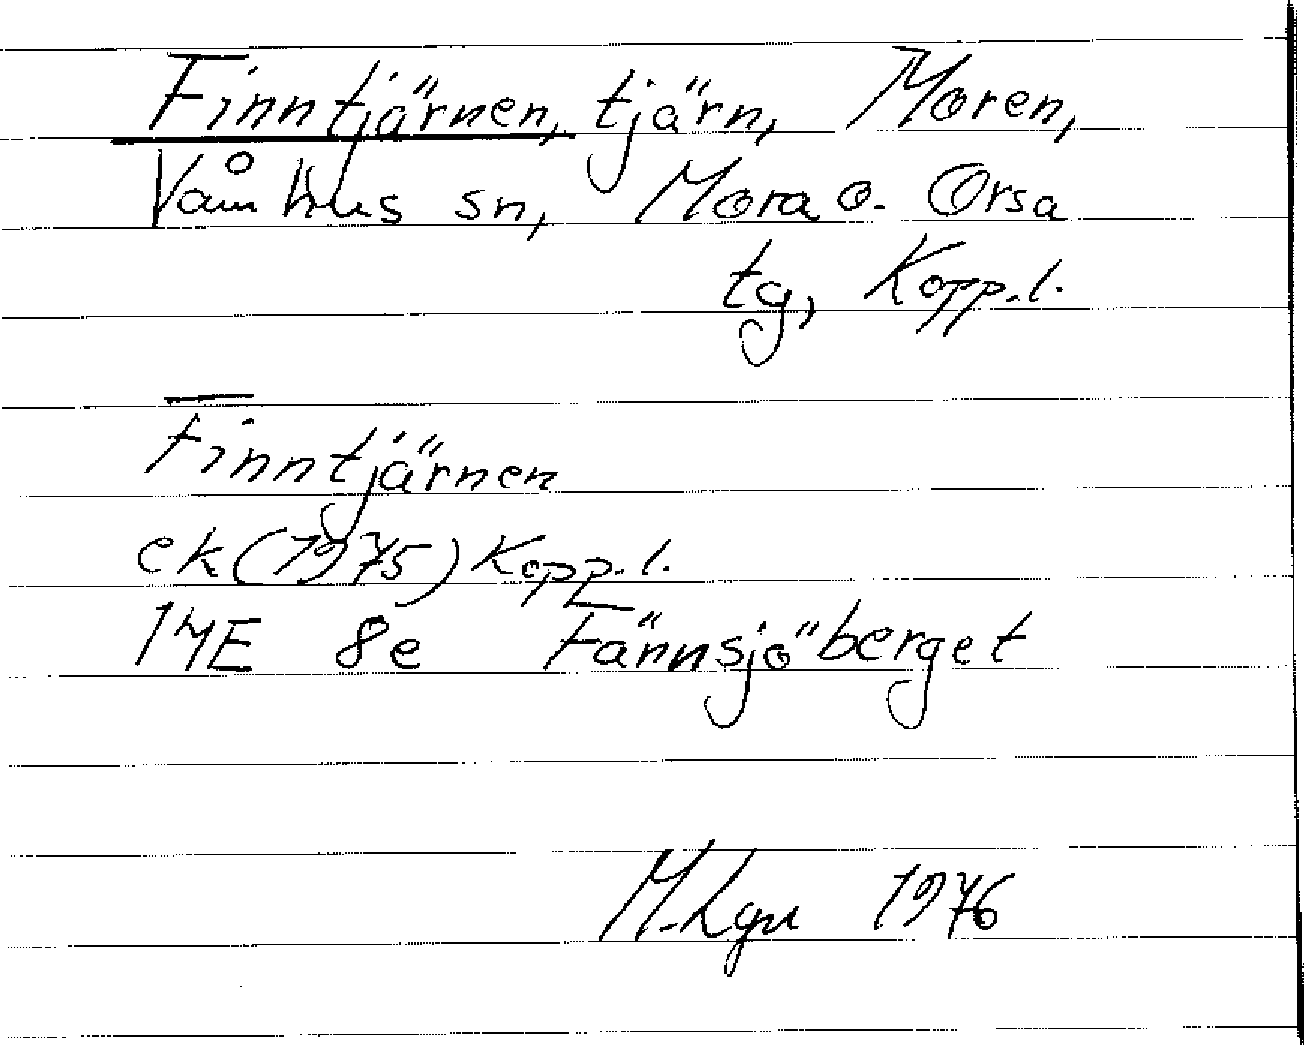 Finntjärnen, tjärn, Moren,
Våmhus sn, Mora o. Orsa
tg, Kopp.l.
Finntjärnen
ek (1975) Kopp.l.
14E 8e Fännsjöberget
1976